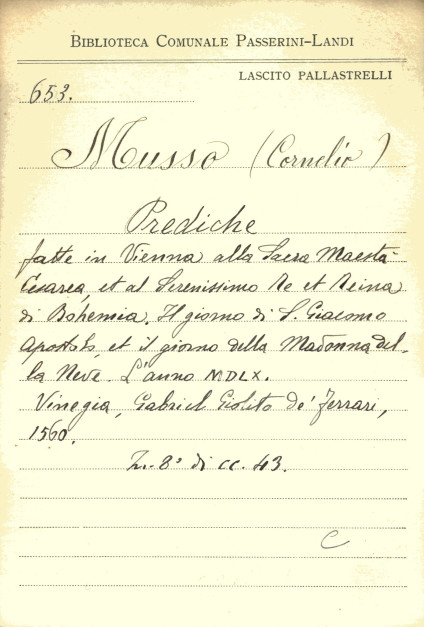 BIBLIOTECA COMUNALE PASSERINI-LANDI
LASCITO PALLASTRELLI
653.
Musso (Cornelio)
Prediche
fatte in Vienna alla Sacra Maestà
Cesarea, et al Serenissimo Re et Reina
di Bohemia. Il giorno di S. Giacomo
Apostolo, et il giorno della Madonna del-
la Neve. L'anno MDLX.
Vinegia, Gabriel Giolito de' Ferrari,
1560.
In. 8° di cc. 43.
C